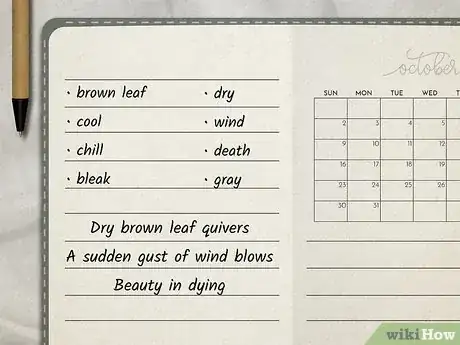 october
• brown leaf • dry
• cool • wind
• chill • death
• bleak • gray
Dry brown leaf quivers
A sudden gust of wind blows
Beauty in dying
SUN MON TUE WED
2 3 4 5
9 10 11 12
16 17 18 19
23 24 25 26
30 31
wikiHow